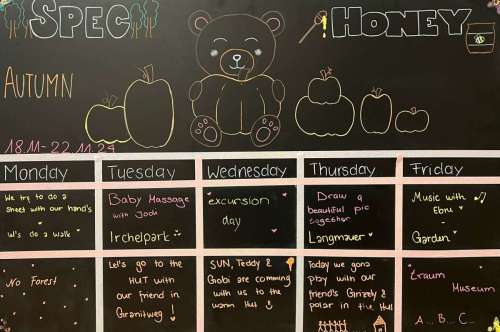 SPEC
HONEY
AUTUMN
18.11-22.11.24
Monday
Tuesday
Wednesday
Thursday
Friday
We try to do a
sheet with our hand's
W's do a walk
Baby Massage
with Jodi
Irchelpark
excursion
day
Draw a
beautiful pic
together
Langmauer
Music with
Ebru
Garden
No Forest
Let's go to the
HUT with
our friend in
Granitweg !
SUN, Teddy &
Giobi are comming
with us to the
warm Hut
Today we gona
play with our
friend's Grizzely &
polar in the Hut
Traum
Museum
A... B... C...